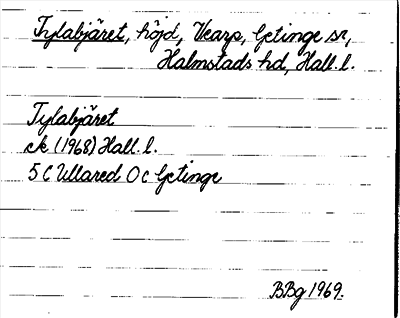 Tylabjäret, höjd, Vearp, Getinge sn,
Halmstads hd, Hall. l.
Tylabjäret
ek (1968) Hall. l.
5 C Ullared 0 c Getinge
BBg 1969.